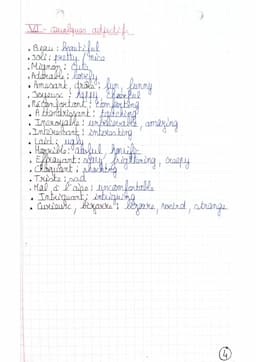 VI - Quelques adjectifs
. Beau : beautiful
. Joli : pretty / nice
. Mignon : cute
. Adorable : lovely
. Amusant, drôle : fun, funny
. Joyeux : happy, cheerful
. Réconfortant : comforting
. Attendrissant : touching
. Incroyable : unbelievable, amazing
. Intéressant : interesting
. Laid : ugly
. Horrible : awful, horrific
. Effrayant : scary, frightening, creepy
. Choquant : shocking
. Triste : sad
. Mal à l'aise : uncomfortable
. Intriguant : intriguing
. Curieux, bizarre : bizarre, weird, strange
4